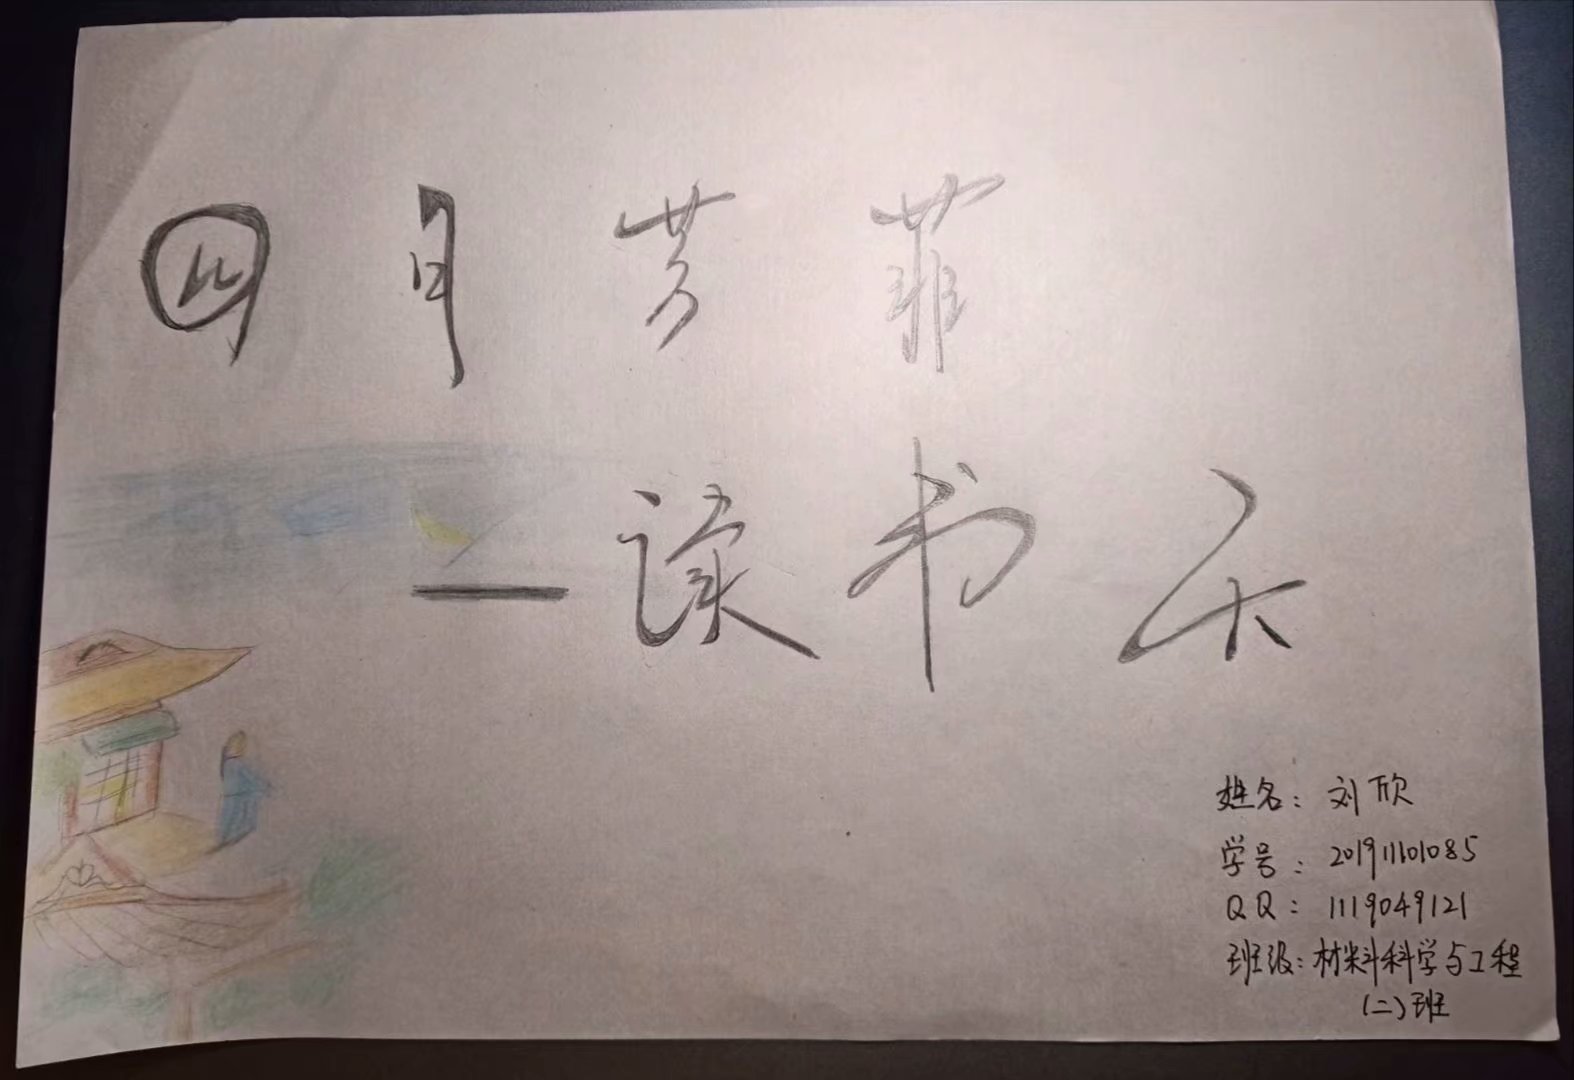 四月芳菲
—读书天
姓名：刘欣
学号：201911101085
QQ：1119049121
班级：材料科学与工程
（二）班